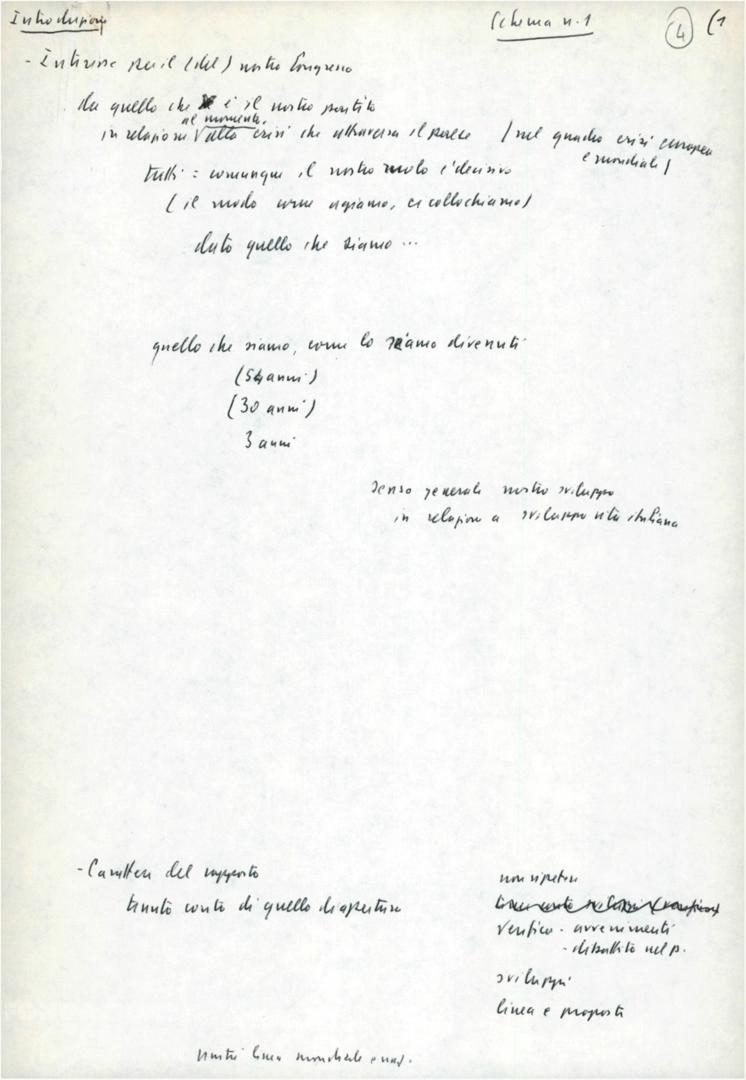 Introduzione
Schema n. 1
4 (1
- Interesse per il (del) nostro Congresso
da quello che è il nostro partito
al momento
in relazione alla crisi che attraversa il paese (nel quadro crisi europea
e mondiale)
tutti = comunque il nostro ruolo è decisivo
(il modo come agiamo, ci collochiamo)
dato quello che siamo ...
quello che siamo, come lo siamo divenuti
(54 anni)
(30 anni)
3 anni
senso generale nostro sviluppo
in relazione a sviluppo vita italiana
- Carattere del rapporto
tenuto conto di quello di apertura
non ripetere
verifica - avvenimenti
- dibattito nel p.
sviluppi
linea e proposte
linea mondiale e naz.